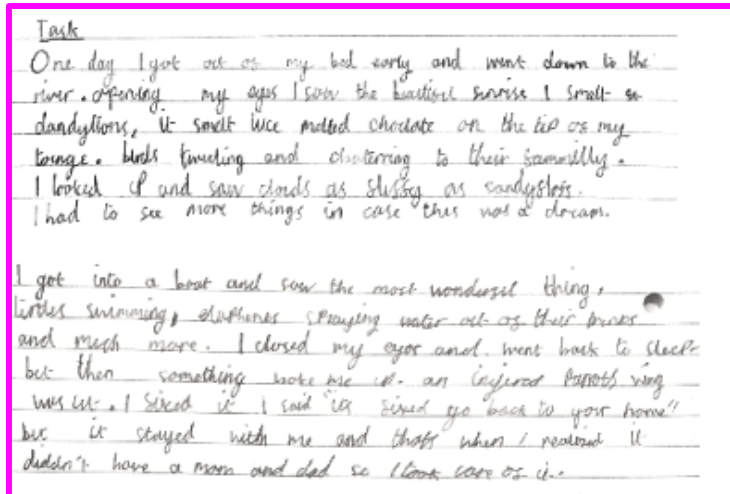 Task
One day I got out os my bed early and went down to the
river. opening my eyes I saw the beautisul sunrise I smelt
dandylions, it smelt like melted choclate on the tip os my
tounge. birds tweeting and chattering to their sammilly.
I looked up and saw clouds as slussy as candysloss.
I had to see more things in case this was a dream.
I got into a boat and saw the most wondersul thing,
turtles swimming, elaphenes spraying water out os their trunks
and much more. I closed my eyes and went back to sleep
but then something woke me up. an injered parrots wing
was cut. I sixed it I said "im sixed go back to your home"
but it stayed with me and thats when I realized it
diddn't have a mom and dad so I took care os it..